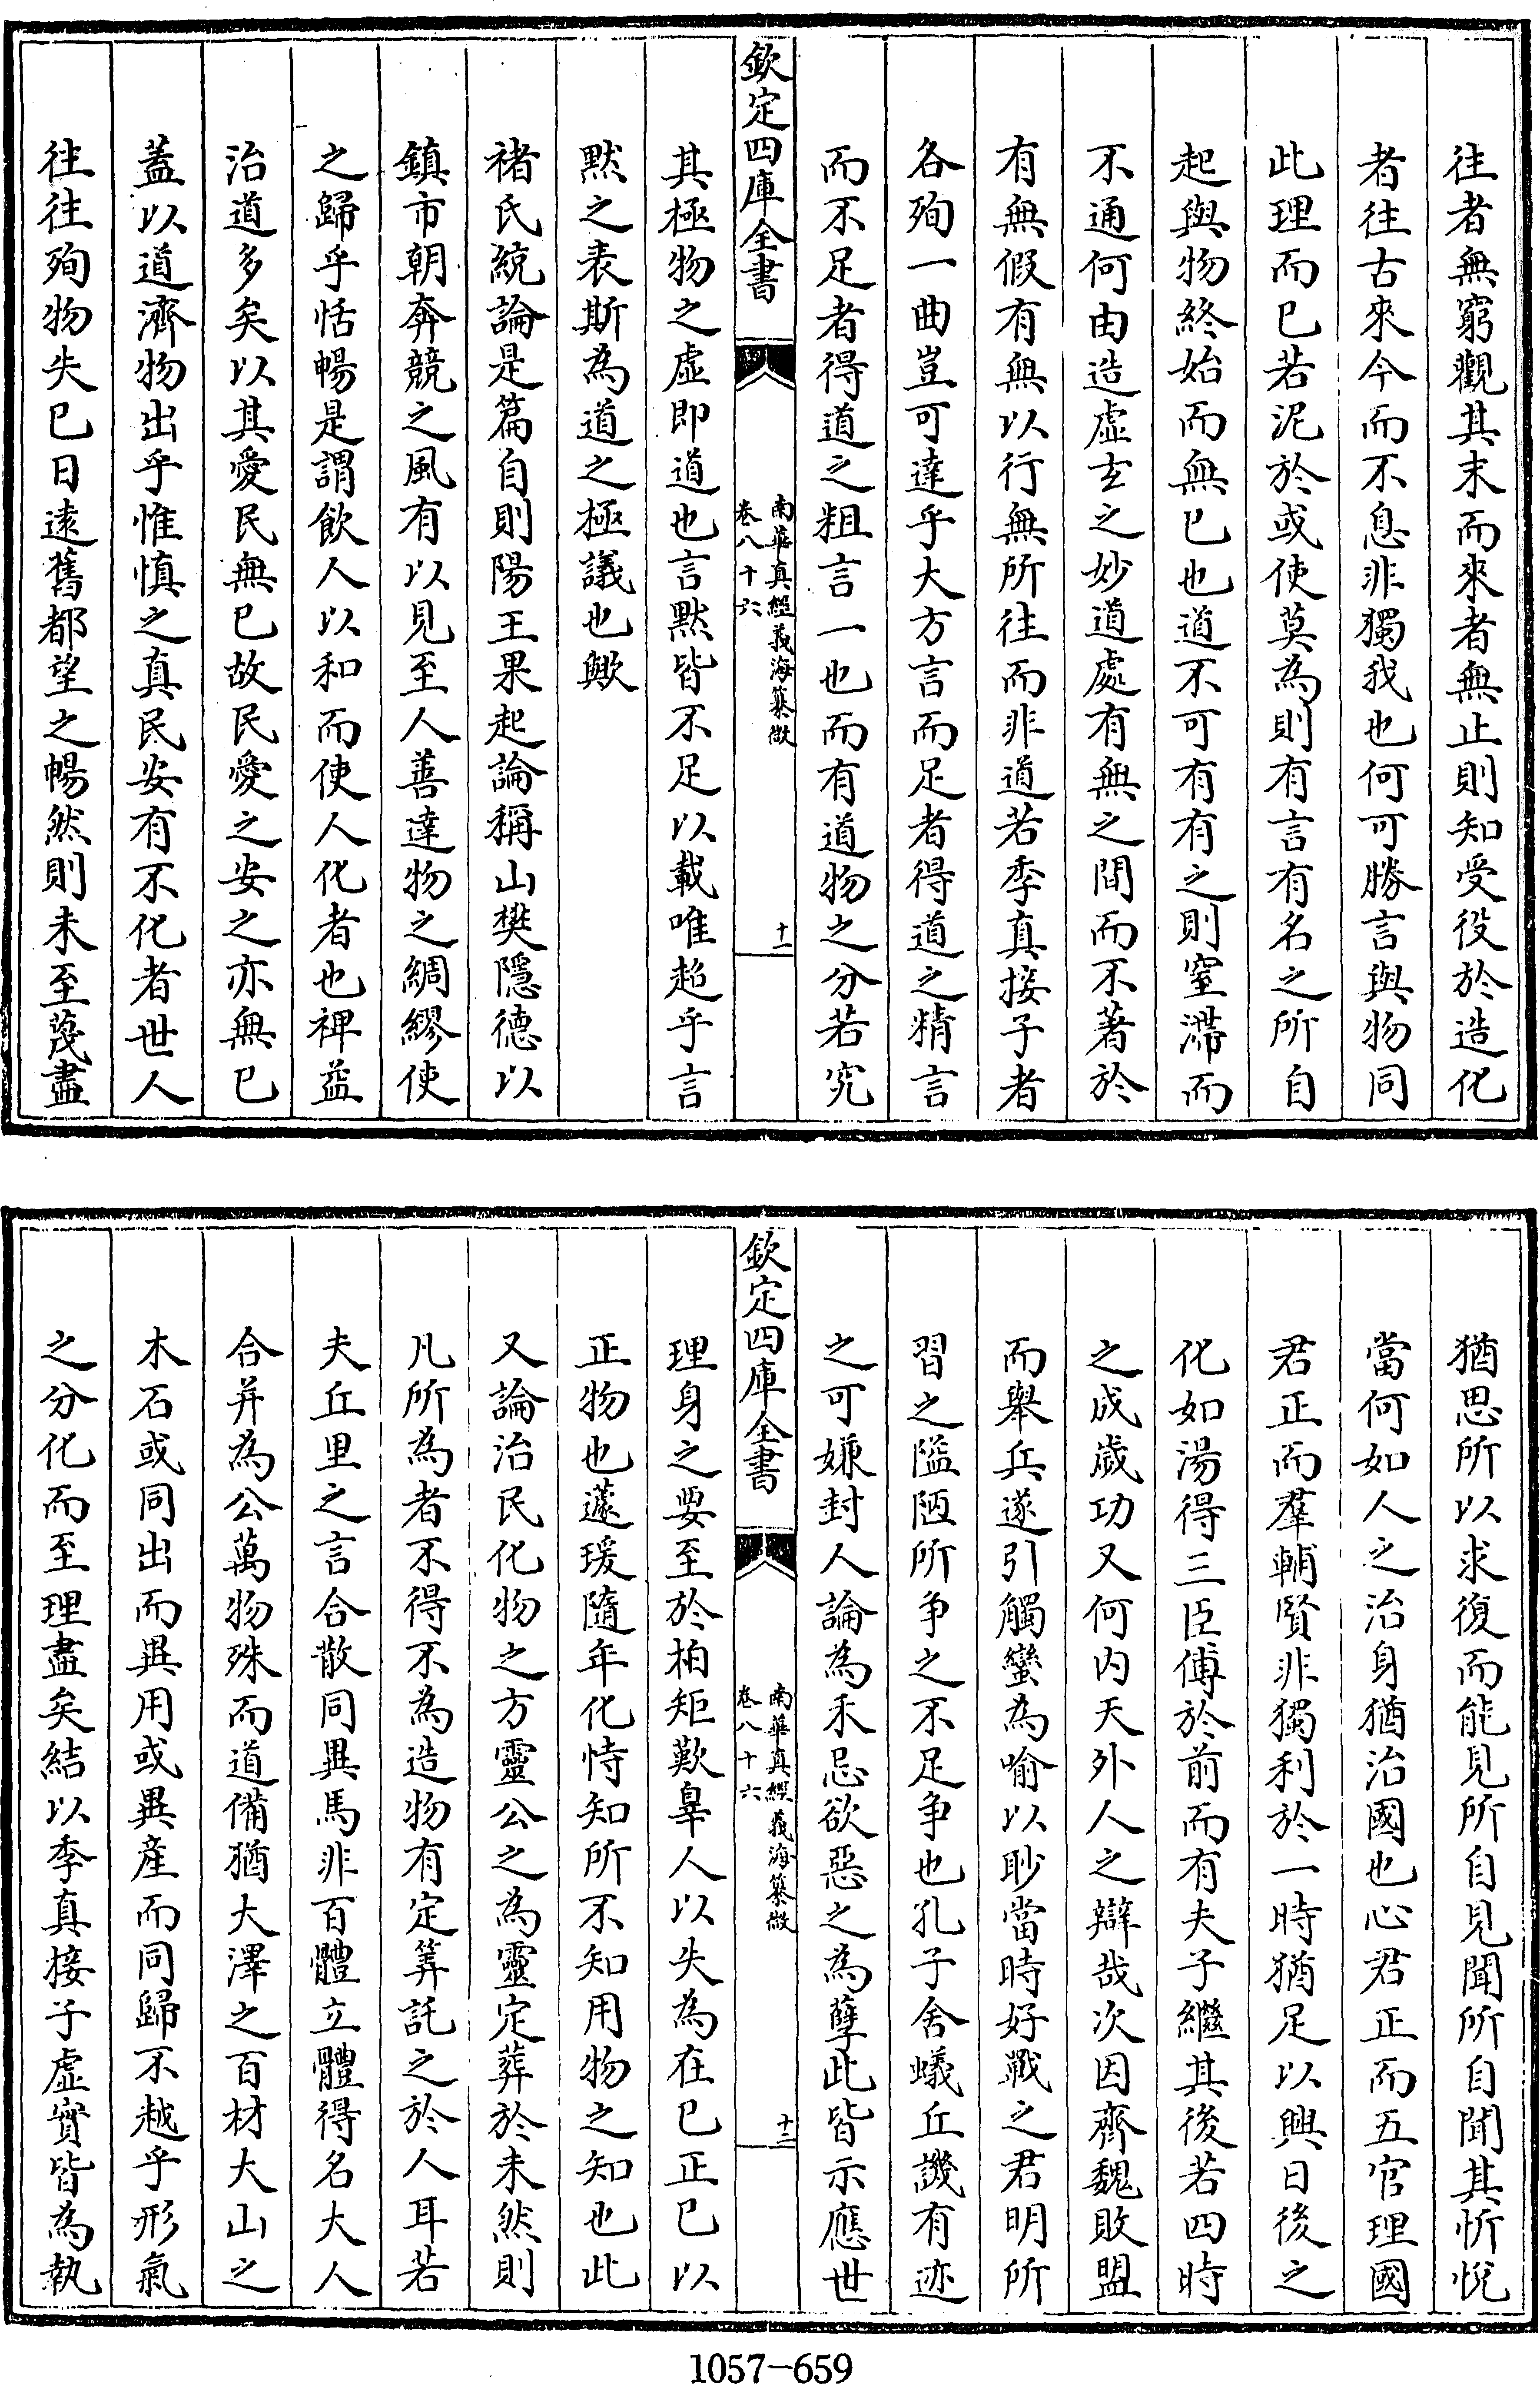 往者無窮觀其末而來者無止則知受役於造化
者往古來今而不息非獨我也何可勝言與物同
此理而已若泥於或使莫為則有言有名之所自
起與物終始而無已也道不可有有之則窒滯而
不通何由造虛玄之妙道處有無之間而不著於
有無假有無以行無所往而非道若季真接子者
各殉一曲豈可達乎大方言而足者得道之精言
而不足者得道之粗言一也而有道物之分若究
欽定四庫全書
南華真經義海纂微
卷八十六
十一
其極物之虛即道也言默皆不足以載唯超乎言
默之表斯為道之極議也歟
褚氏統論是篇自則陽王果起論稱山樊隱德以
鎮市朝奔競之風有以見至人善達物之綢繆使
之歸乎恬暢是謂飲人以和而使人化者也裨益
治道多矣以其愛民無已故民愛之安之亦無已
蓋以道濟物出乎惟慎之真民安有不化者世人
往往殉物失已日遠舊都望之暢然則未至蔑盡
猶思所以求復而能見所自見聞所自聞其忻悅
當何如人之治身猶治國也心君正而五官理國
君正而羣輔賢非獨利於一時猶足以興日後之
化如湯得三臣傅於前而有夫子繼其後若四時
之成歲功又何內天外人之辯哉次因齊魏敗盟
而舉兵遂引觸蠻為喻以眇當時好戰之君明所
習之隘陋所争之不足争也孔子舍蟻丘譏有迹
之可嫌封人論為禾忌欲惡之為孽此皆示應世
欽定四庫全書
南華真經義海纂微
卷八十六
十二
理身之要至於柏矩歎辜人以失為在已正已以
正物也蘧瑗隨年化恃知所不知用物之知也此
又論治民化物之方靈公之為靈定葬於未然則
凡所為者不得不為造物有定筭託之於人耳若
夫丘里之言合散同異馬非百體立體得名大人
合并為公萬物殊而道備猶大澤之百材大山之
木石或同出而異用或異產而同歸不越乎形氣
之分化而至理盡矣結以季真接子虛實皆為執
1057-659